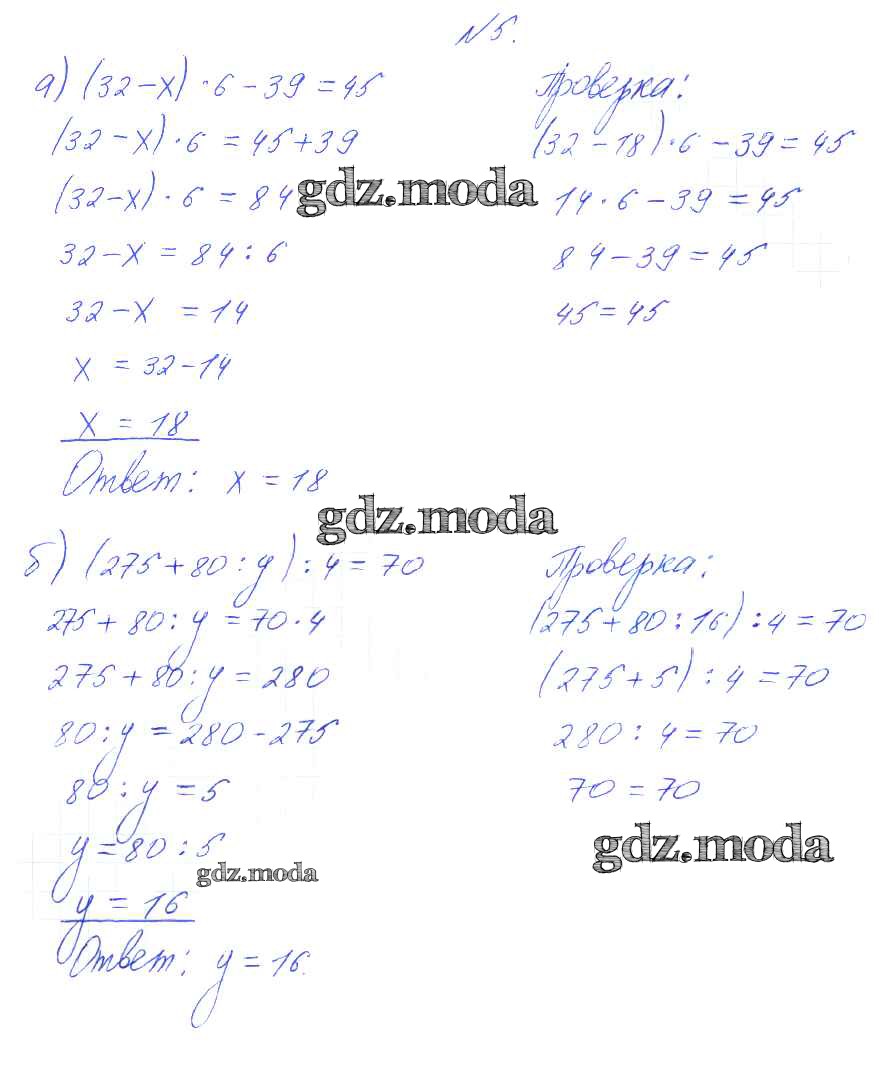 №5.
а) (32 - x) · 6 - 39 = 45
(32 - x) · 6 = 45 + 39
(32 - x) · 6 = 84
32 - x = 84 : 6
32 - x = 14
x = 32 - 14
x = 18
Ответ: x = 18
Проверка:
(32 - 18) · 6 - 39 = 45
14 · 6 - 39 = 45
84 - 39 = 45
45 = 45
gdz.moda
gdz.moda
б) (275 + 80 : y) : 4 = 70
275 + 80 : y = 70 · 4
275 + 80 : y = 280
80 : y = 280 - 275
80 : y = 5
y = 80 : 5
y = 16
Ответ: y = 16.
Проверка:
(275 + 80 : 16) : 4 = 70
(275 + 5) : 4 = 70
280 : 4 = 70
70 = 70
gdz.moda
gdz.moda